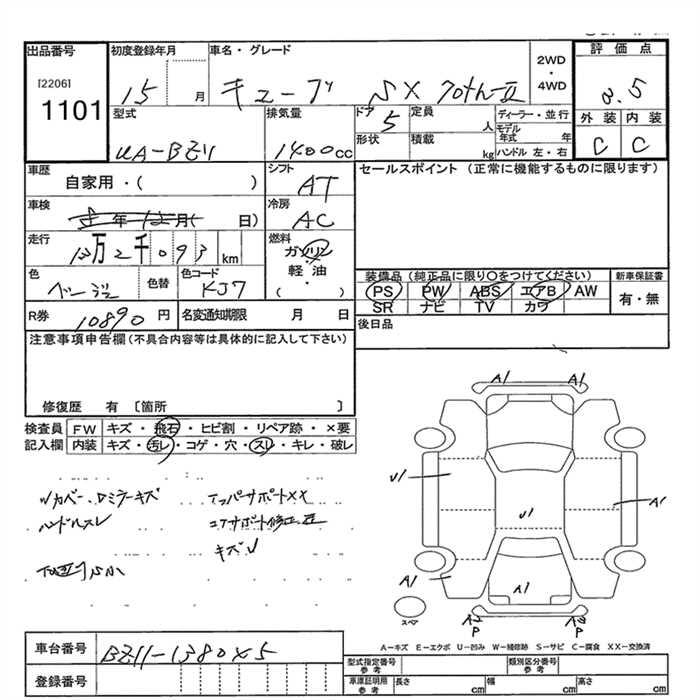 出品番号 初度登録年月 車名・グレード 2WD・4WD 評価点
[2206]
1101
15 月 キューブ SX 3.5
型式 排気量 ドア 定員 人 ディーラー・並行 外装 内装
UA-BZ11 1400cc 5 形状 積載 kg モデル年式 年 C C
ハンドル 左・右
車歴 シフト セールスポイント (正常に機能するものに限ります)
自家用・( ) AT
車検 年 月( 日) 冷房 AC
走行 万 千 093 km 燃料 ガソリン
軽油
・
( )
装備品 (純正品に限り○をつけてください) 新車保証書
色 ベージュ 色替 色コード KJ7
PS PW ABS エアB AW 有・無
SR ナビ TV カワ
R券 10890 円 名変通知期限 月 日 後日品
注意事項申告欄 (不具合内容等は具体的に記入して下さい)
修復歴 有 〔箇所 〕
検査員 FW キズ・飛石・ヒビ割・リペア跡・×要
記入欄 内装 キズ・汚レ・コゲ・穴・スレ・キレ・破レ
ハンドルスレ
キズ
A1 A1
U1 U1 A1
A1 A1
スペア
A2 P A2 P
A-キズ E-エクボ U-凹み W-補修跡 S-サビ C-腐食 XX-交換済
車台番号 BZ11-1380×5
登録番号
型式指定番号 参考 類別区分番号 参考
車庫証明用 参考 長さ cm 幅 cm 高さ cm